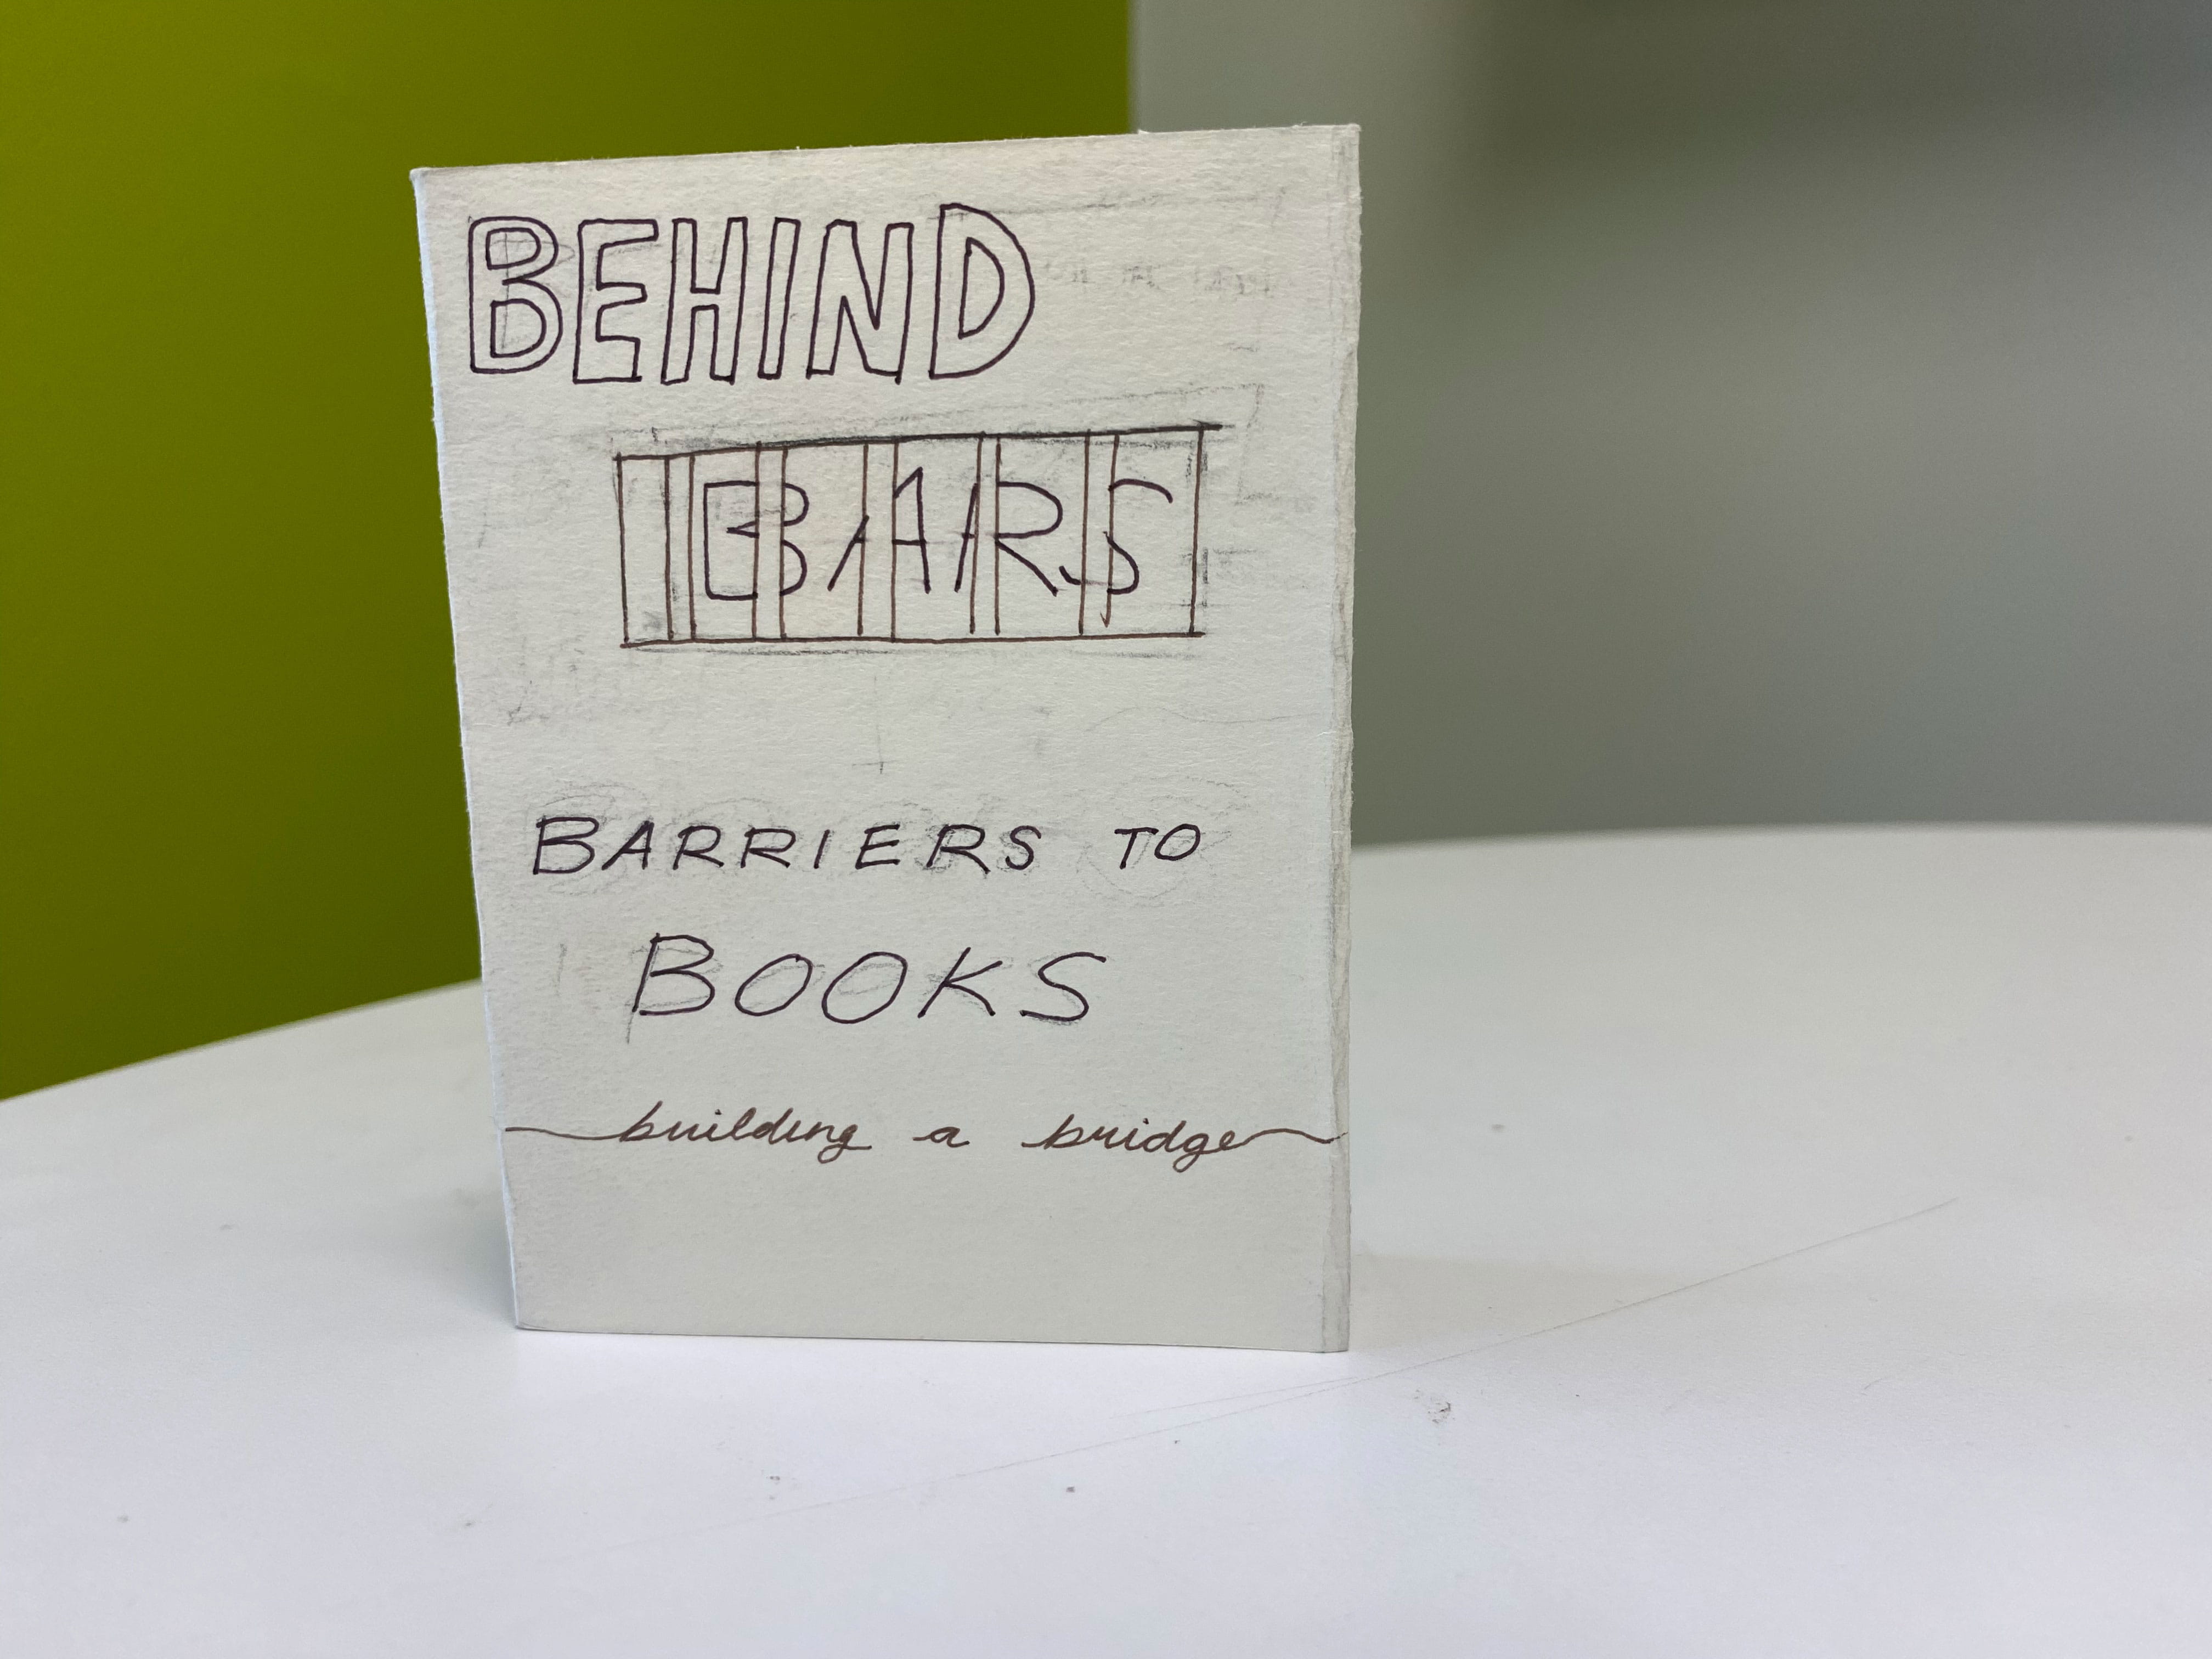 BEHIND
BARS
BARRIERS TO
BOOKS
building a bridge